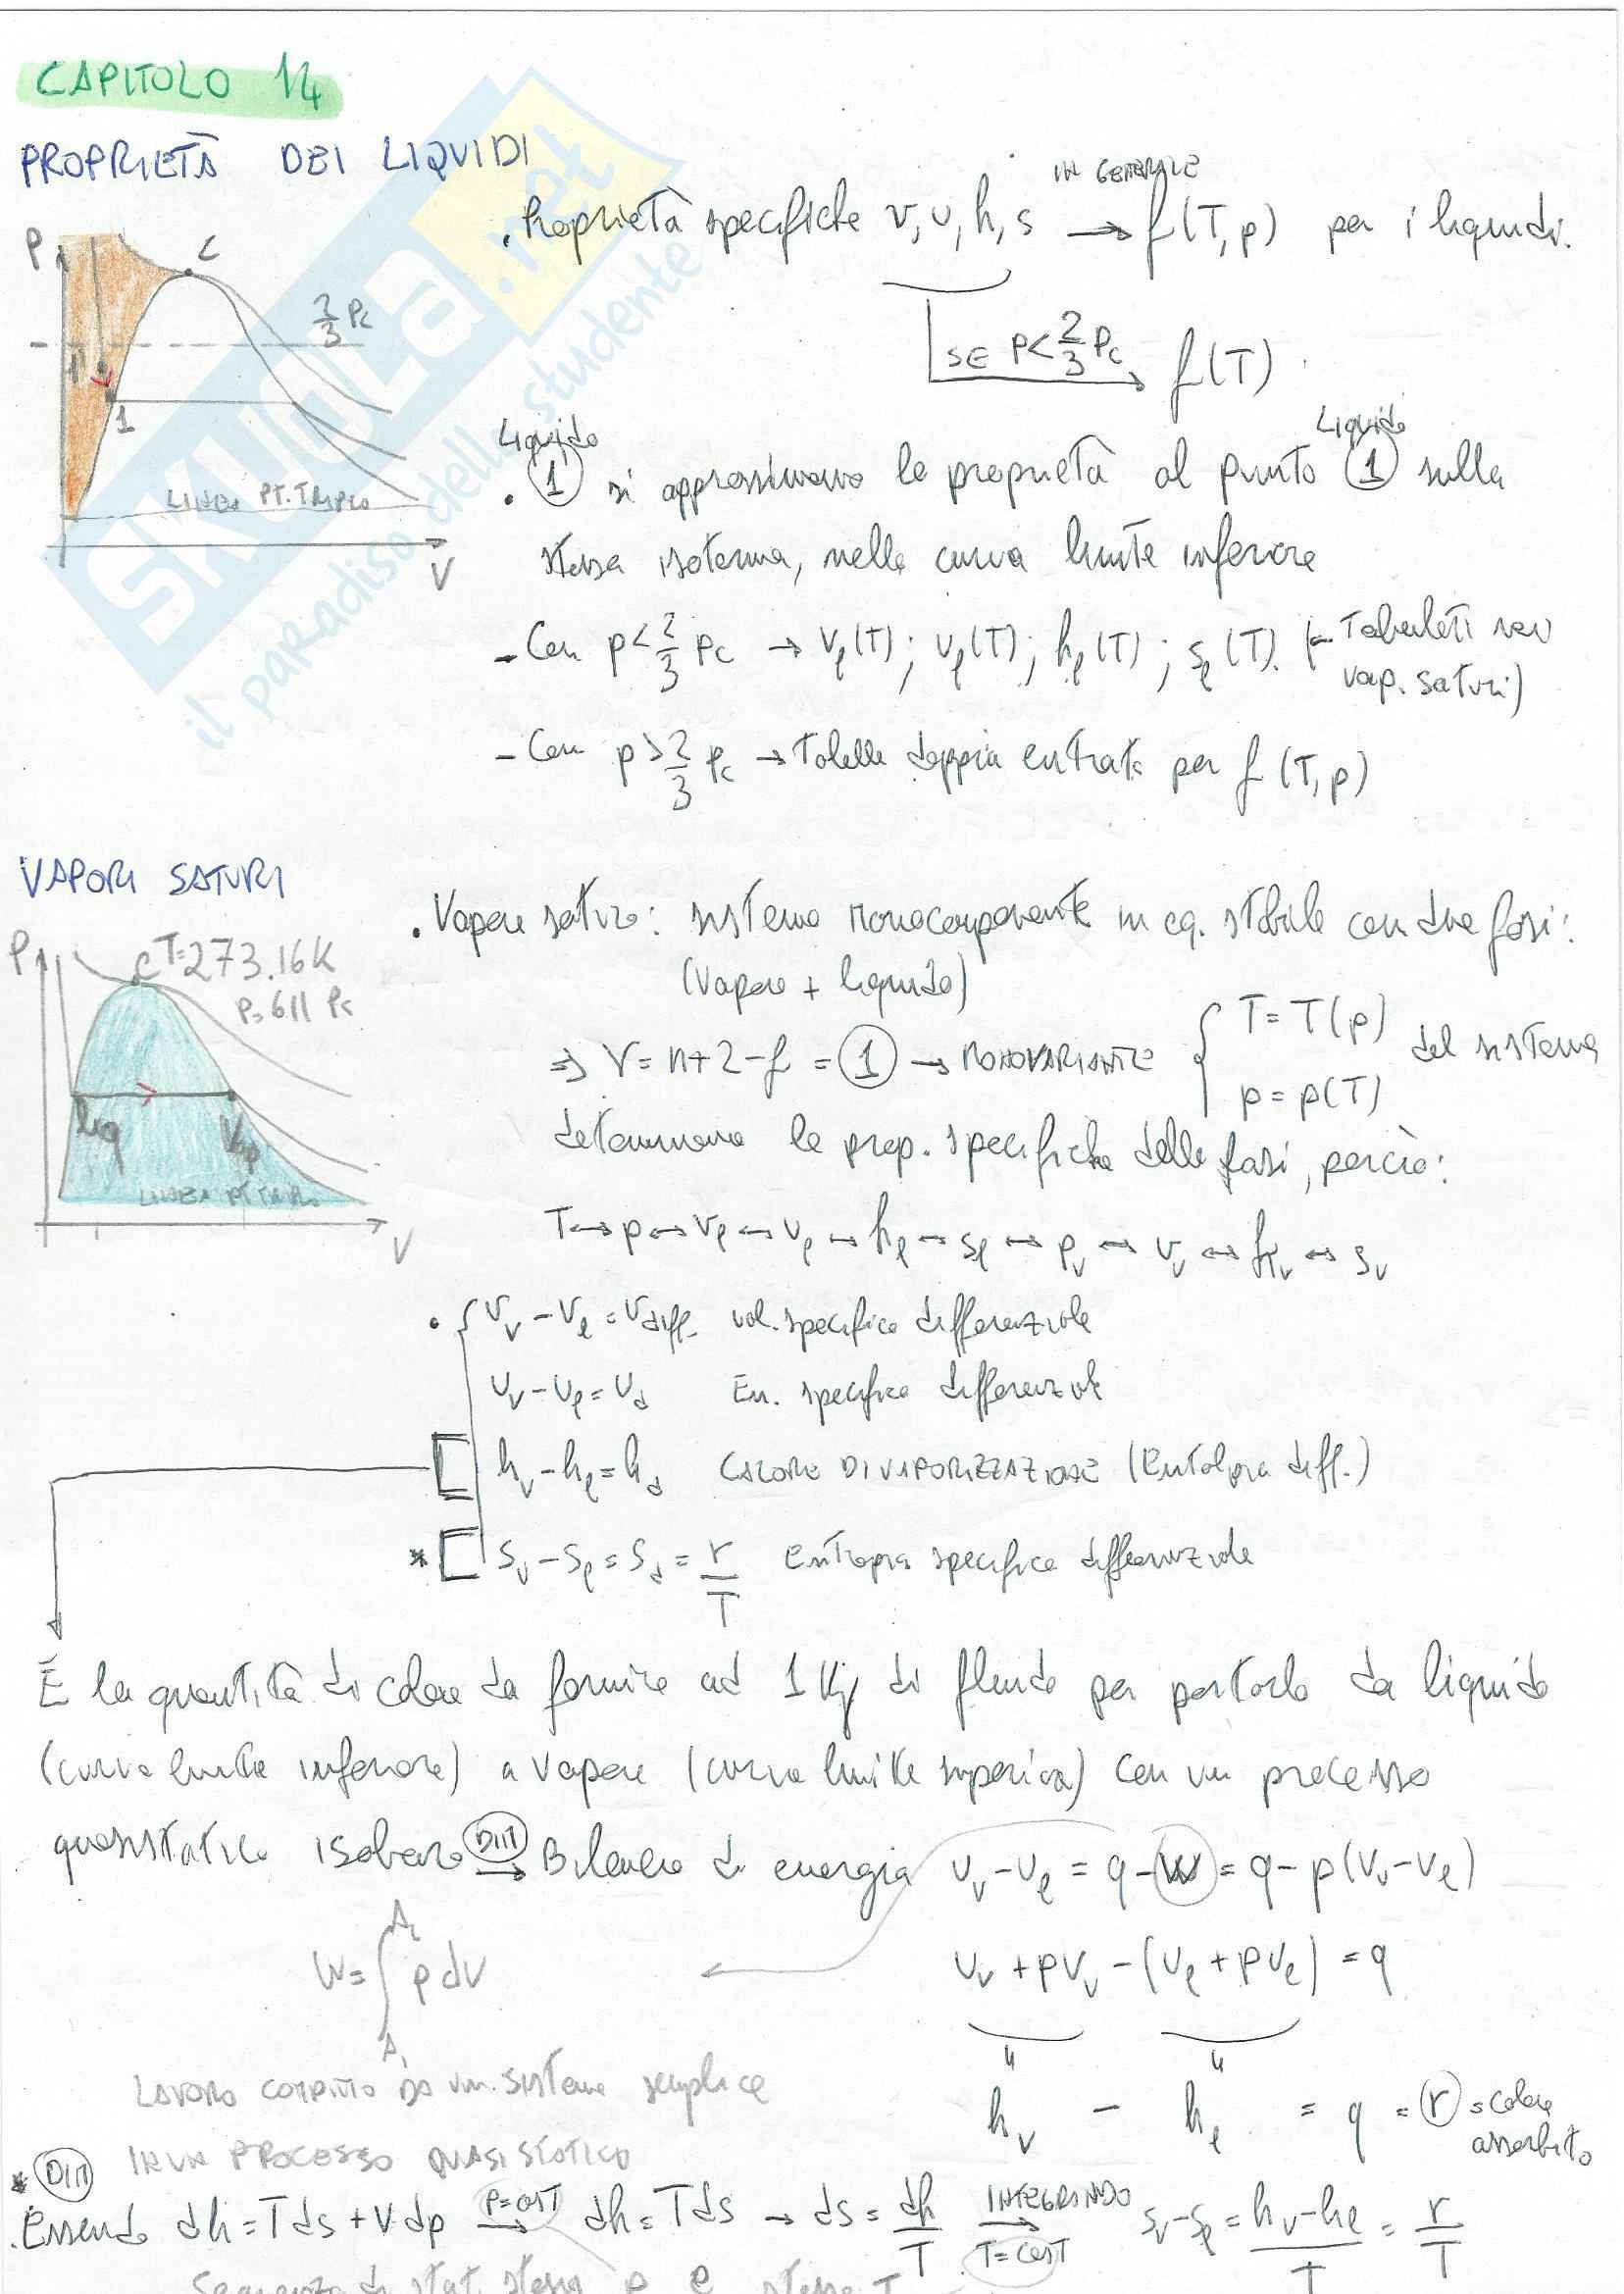 CAPITOLO 14
PROPRIETÀ DEI LIQUIDI
. Proprietà specifiche v, u, h, s → f(T,p) per i liquidi.
IN GENERALE
SE P<2/3 Pc → f(T)
P
C
2/3 Pc
1
LINEA PT. TRIPLO
V
Liquido Liquido
. ① si approssimano le proprietà al punto ① sulla
stessa isoterma, nella curva limite inferiore
- Con p<2/3 pc → vℓ(T); uℓ(T); hℓ(T); sℓ(T). (← Tabulati nei
vap. saturi)
- Con p>2/3 pc → Tabelle doppia entrata per f(T,p)
VAPORI SATURI
P
C T=273.16K
P=611 Pa
liq
Vap
LINEA PT TRIPLO
V
. Vapore saturo: sistema monocomponente in eq. stabile con due fasi:
(Vapore + liquido)
⇒ V= n+2-f = ① → MONOVARIANTE { T=T(p) p=p(T) del sistema
determinano le prop. specifiche delle fasi, perciò:
T↔p↔vℓ↔uℓ↔hℓ↔sℓ↔pv↔vv↔hv↔sv
. { vv-vℓ=vdiff. vol. specifico differenziale
uv-uℓ=ud En. specifica differenziale
[ hv-hℓ=hd CALORE DI VAPORIZZAZIONE (Entalpia diff.)
* [ sv-sℓ=sd=r/T Entropia specifica differenziale
È la quantità di calore da fornire ad 1 Kg di fluido per portarlo da liquido
(curva limite inferiore) a vapore (curva limite superiore) con un processo
quasistatico isobaro DIM → Bilancio di energia uv-uℓ=q-W=q-p(vv-vℓ)
W=∫ p dV
A2
A1
uv+pvv-(uℓ+pvℓ)=q
LAVORO COMPIUTO DA un sistema semplice
IN UN PROCESSO QUASISTATICO
hv - hℓ = q = r = calore
assorbito
* DIM
. Essendo dh=Tds+vdp P=cost → dh=Tds → ds=dh/T INTEGRANDO T=cost → sv-sℓ=hv-hℓ/T=r/T
SKUOLA.net
il paradiso dello studente